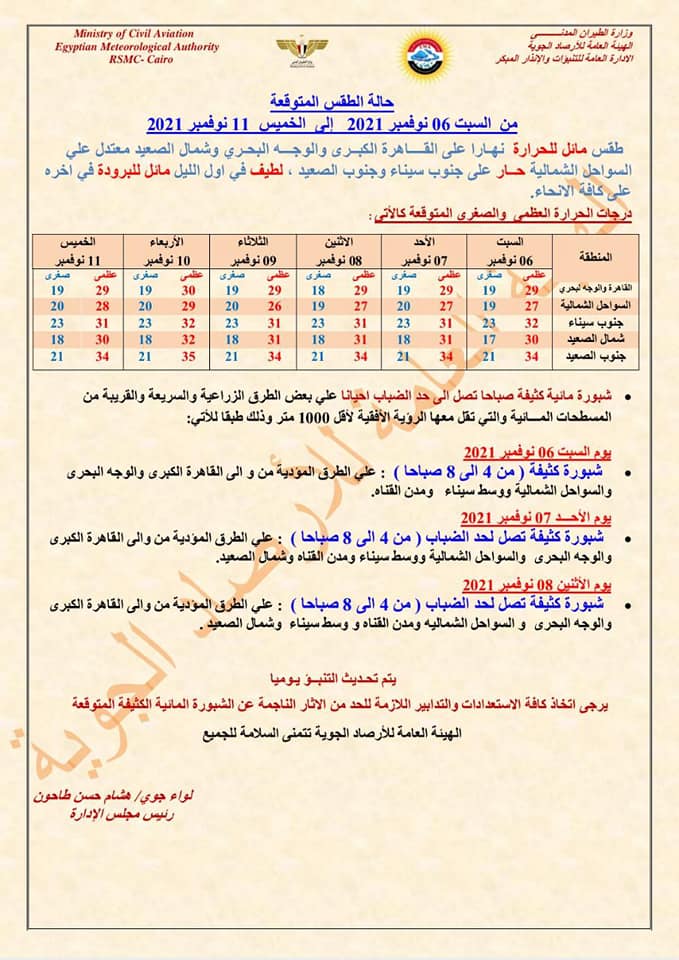 Ministry of Civil Aviation
Egyptian Meteorological Authority
RSMC- Cairo
وزارة الطيران المدنـــــي
الهيئة العامة للأرصاد الجوية
الادارة العامة للتنبؤات والانذار المبكر
حالة الطقس المتوقعة
من السبت 06 نوفمبر 2021 إلى الخميس 11 نوفمبر 2021
طقس مائل للحرارة نهارا على القــاهرة الكبـرى والوجــه البحـري وشمال الصعيد معتدل علي
السواحل الشمالية حــار على جنوب سيناء وجنوب الصعيد ، لطيف في اول الليل مائل للبرودة في اخره
على كافة الانحاء.
درجات الحرارة العظمي والصغرى المتوقعة كالأتي:
المنطقة السبت 06 نوفمبر الأحد 07 نوفمبر الاثنين 08 نوفمبر الثلاثاء 09 نوفمبر الأربعاء 10 نوفمبر الخميس 11 نوفمبر
عظمى صغرى عظمى صغرى عظمى صغرى عظمى صغرى عظمى صغرى عظمى صغرى
القاهرة والوجه لبحري 29 19 29 19 29 18 29 19 30 19 29 19
السواحل الشمالية 27 19 27 20 27 19 26 20 29 20 28 20
جنوب سيناء 32 23 31 23 31 23 31 23 32 23 31 23
شمال الصعيد 30 17 31 18 31 18 31 18 32 18 30 18
جنوب الصعيد 34 21 34 21 34 21 34 21 35 21 34 21
• شبورة مائية كثيفة صباحا تصل الى حد الضباب احيانا علي بعض الطرق الزراعية والسريعة والقريبة من
المسطحات المـــائية والتي تقل معها الرؤية الأفقية لأقل 1000 متر وذلك طبقا للأتي:
يوم السبت 06 نوفمبر 2021
• شبورة كثيفة ( من 4 الى 8 صباحا ) : علي الطرق المؤدية من و الى القاهرة الكبرى والوجه البحرى
والسواحل الشمالية ووسط سيناء ومدن القناه.
يوم الأحــد 07 نوفمبر 2021
• شبورة كثيفة تصل لحد الضباب ( من 4 الى 8 صباحا ) : علي الطرق المؤدية من والى القاهرة الكبرى
والوجه البحرى والسواحل الشمالية ووسط سيناء ومدن القناه وشمال الصعيد.
يوم الأثنين 08 نوفمبر 2021
• شبورة كثيفة تصل لحد الضباب ( من 4 الى 8 صباحا ) : علي الطرق المؤدية من والى القاهرة الكبرى
والوجه البحرى و السواحل الشماليه ومدن القناه و وسط سيناء وشمال الصعيد .
يتم تحـديث التنبـؤ يـوميا
يرجى اتخاذ كافة الاستعدادات والتدابير اللازمة للحد من الاثار الناجمة عن الشبورة المائية الكثيفة المتوقعة
الهيئة العامة للأرصاد الجوية تتمنى السلامة للجميع
لواء جوي/ هشام حسن طاحون
رئيس مجلس الإدارة
الهيئة العامة للأرصاد الجوية